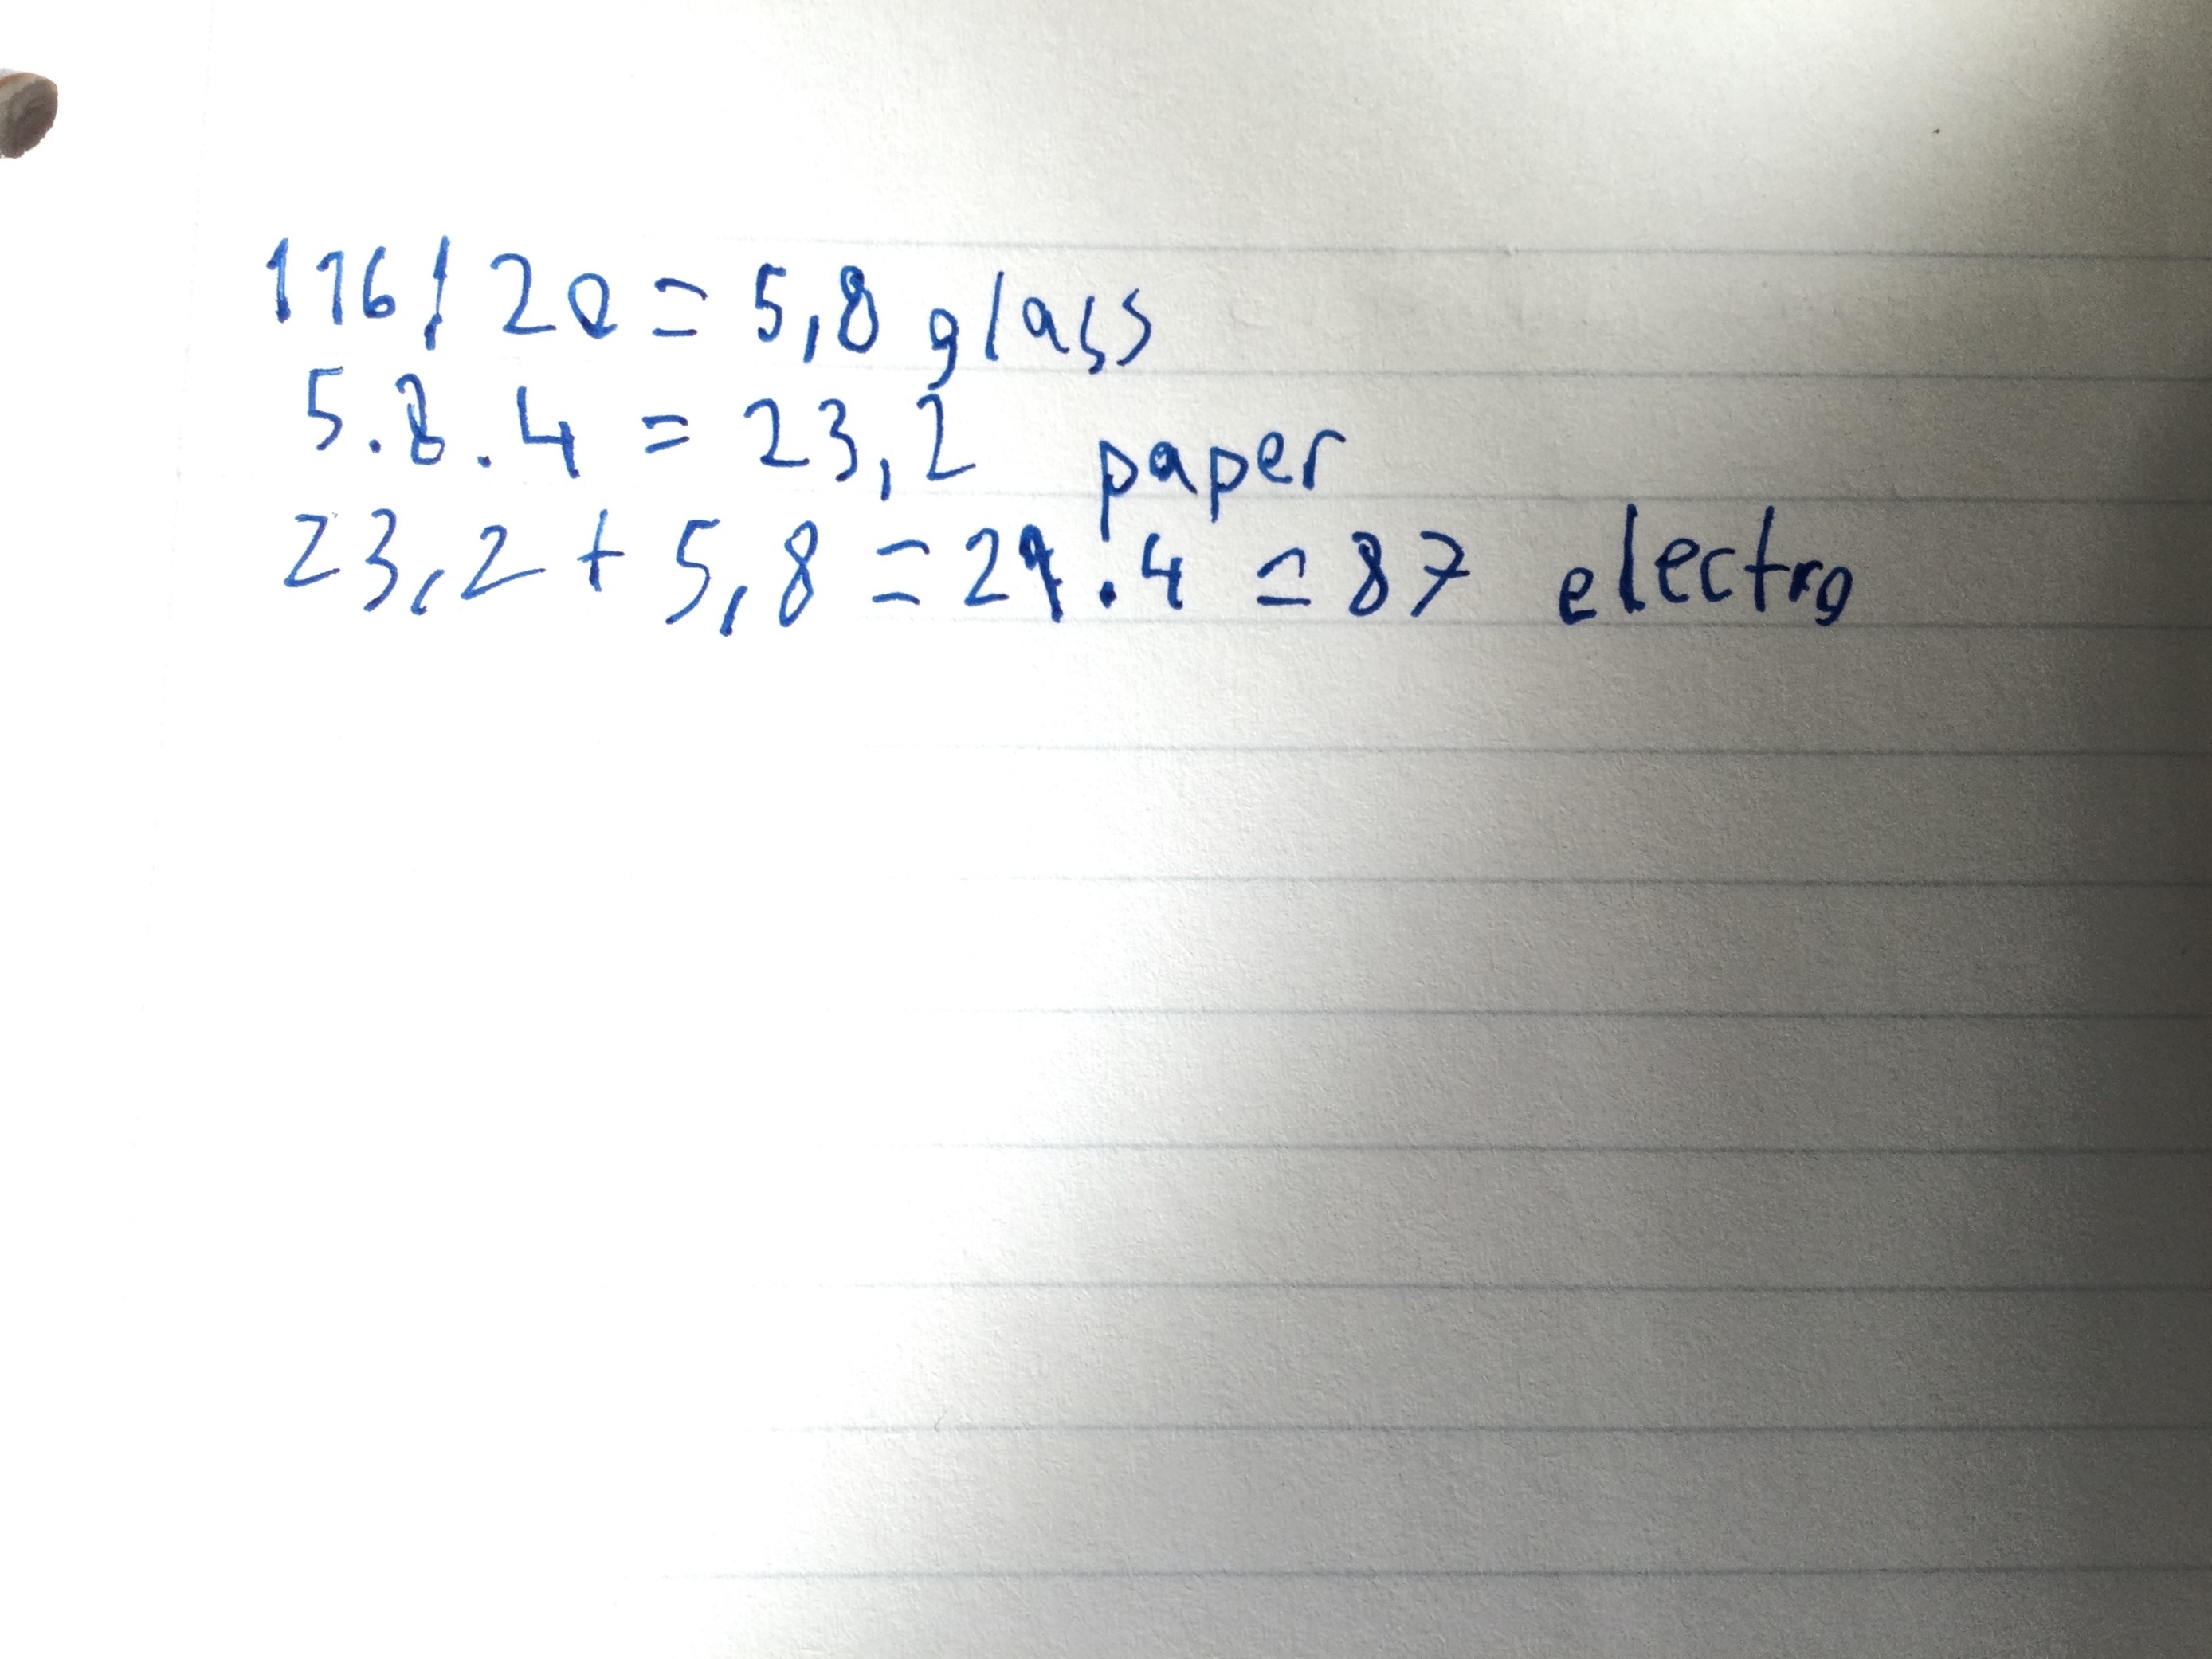 116/20 = 5,8 glass
5.8.4 = 23,2 paper
23,2 + 5,8 = 29.4 = 87 electro